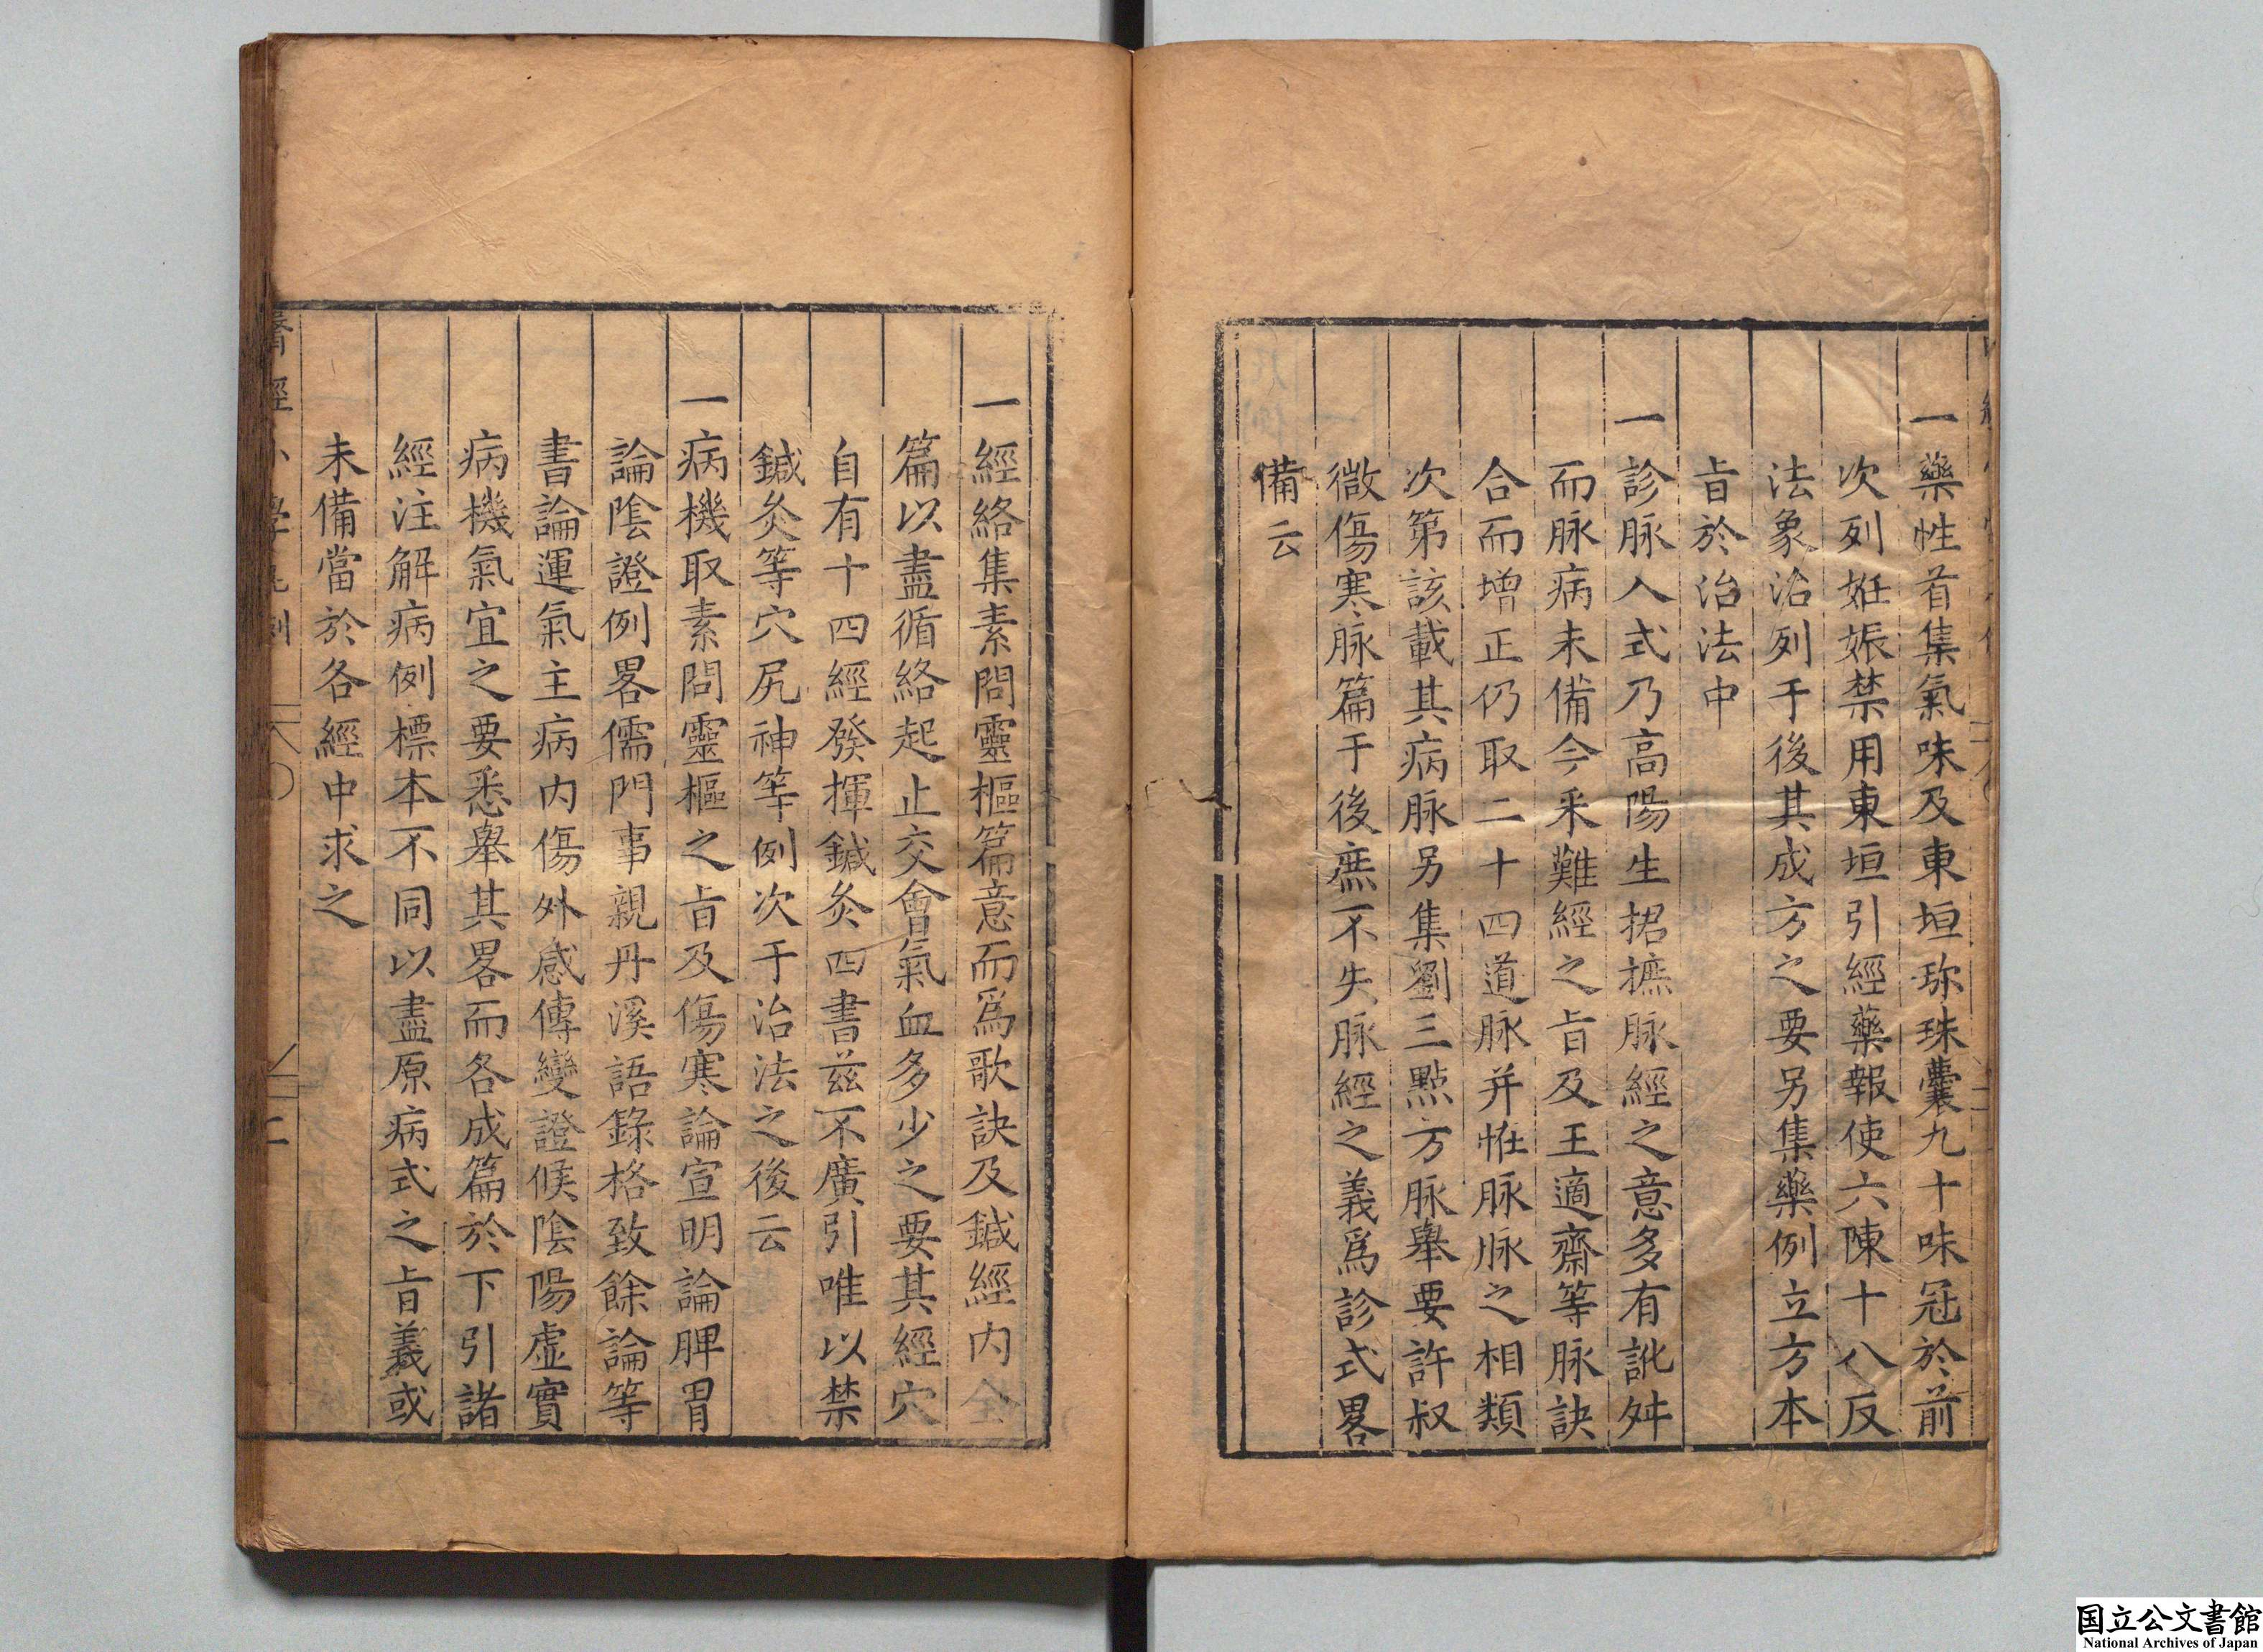 一藥性首集氣味及東垣珎珠囊九十味冠於前
次列姙娠禁用東垣引經藥報使六陳十八反
法象治列于後其成方之要另集藥例立方本
旨於治法中
一診脉入式乃高陽生捃摭脉經之意多有訛舛
而脉病未備今釆難經之旨及王適齋等脉訣
合而增正仍取二十四道脉并恠脉脉之相類
次第該載其病脉另集劉三點方脉舉要許叔
微傷寒脉篇于後庶不失脉經之義爲診式畧
備云
一經絡集素問靈樞篇意而爲歌訣及鍼經内全
篇以盡循絡起止交會氣血多少之要其經穴
自有十四經發揮鍼灸四書兹不廣引唯以禁
鍼灸等穴尻神等例次于治法之後云
一病機取素問靈樞之旨及傷寒論宣明論脾胃
論陰證例畧儒門事親丹溪語錄格致餘論等
書論運氣主病内傷外感傳變證候陰陽虚實
病機氣宜之要悉舉其畧而各成篇於下引諸
經注解病例標本不同以盡原病式之旨義或
未備當於各經中求之
醫經小學凡例
国立公文書館
National Archives of Japan